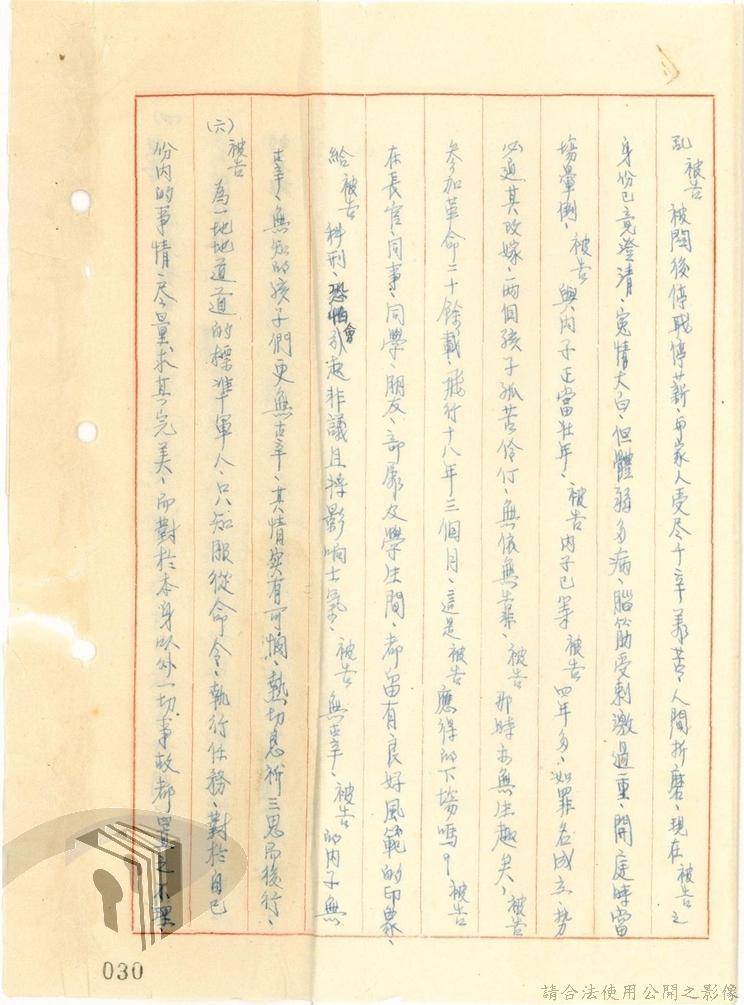 亂被告被關後停職停薪、而家人受尽千辛萬苦、人間折磨、現在被告之
身份已竟澄清、冤情大白、但體弱多病、腦筋受刺激過重、開庭時當
場暈倒、被告與內子正當壯年、被告內子已等被告四年多、如罪名成立、勢
必逼其改嫁、兩個孩子孤苦伶仃、無依無靠、被告那時亦無生趣矣、被告
參加革命二十餘載、飛行十八年三個月、這是被告應得的下場嗎？被告
在長官、同事、同學、朋友、部屬及學生間、都留有良好風範的印象、
給被告科刑、恐怕會引起非議且將影响士氣、被告無辜、被告的內子無
辜、無知的孩子們更無辜、其情实有可憫、懇切息祈三思而後行、
(六)被告為一地地道道的標準軍人、只知服從命令、執行任務、對於自己
份內的事情、尽量求其完美、而對於本身以外一切事故都置之不理、
030
請合法使用公開之影像